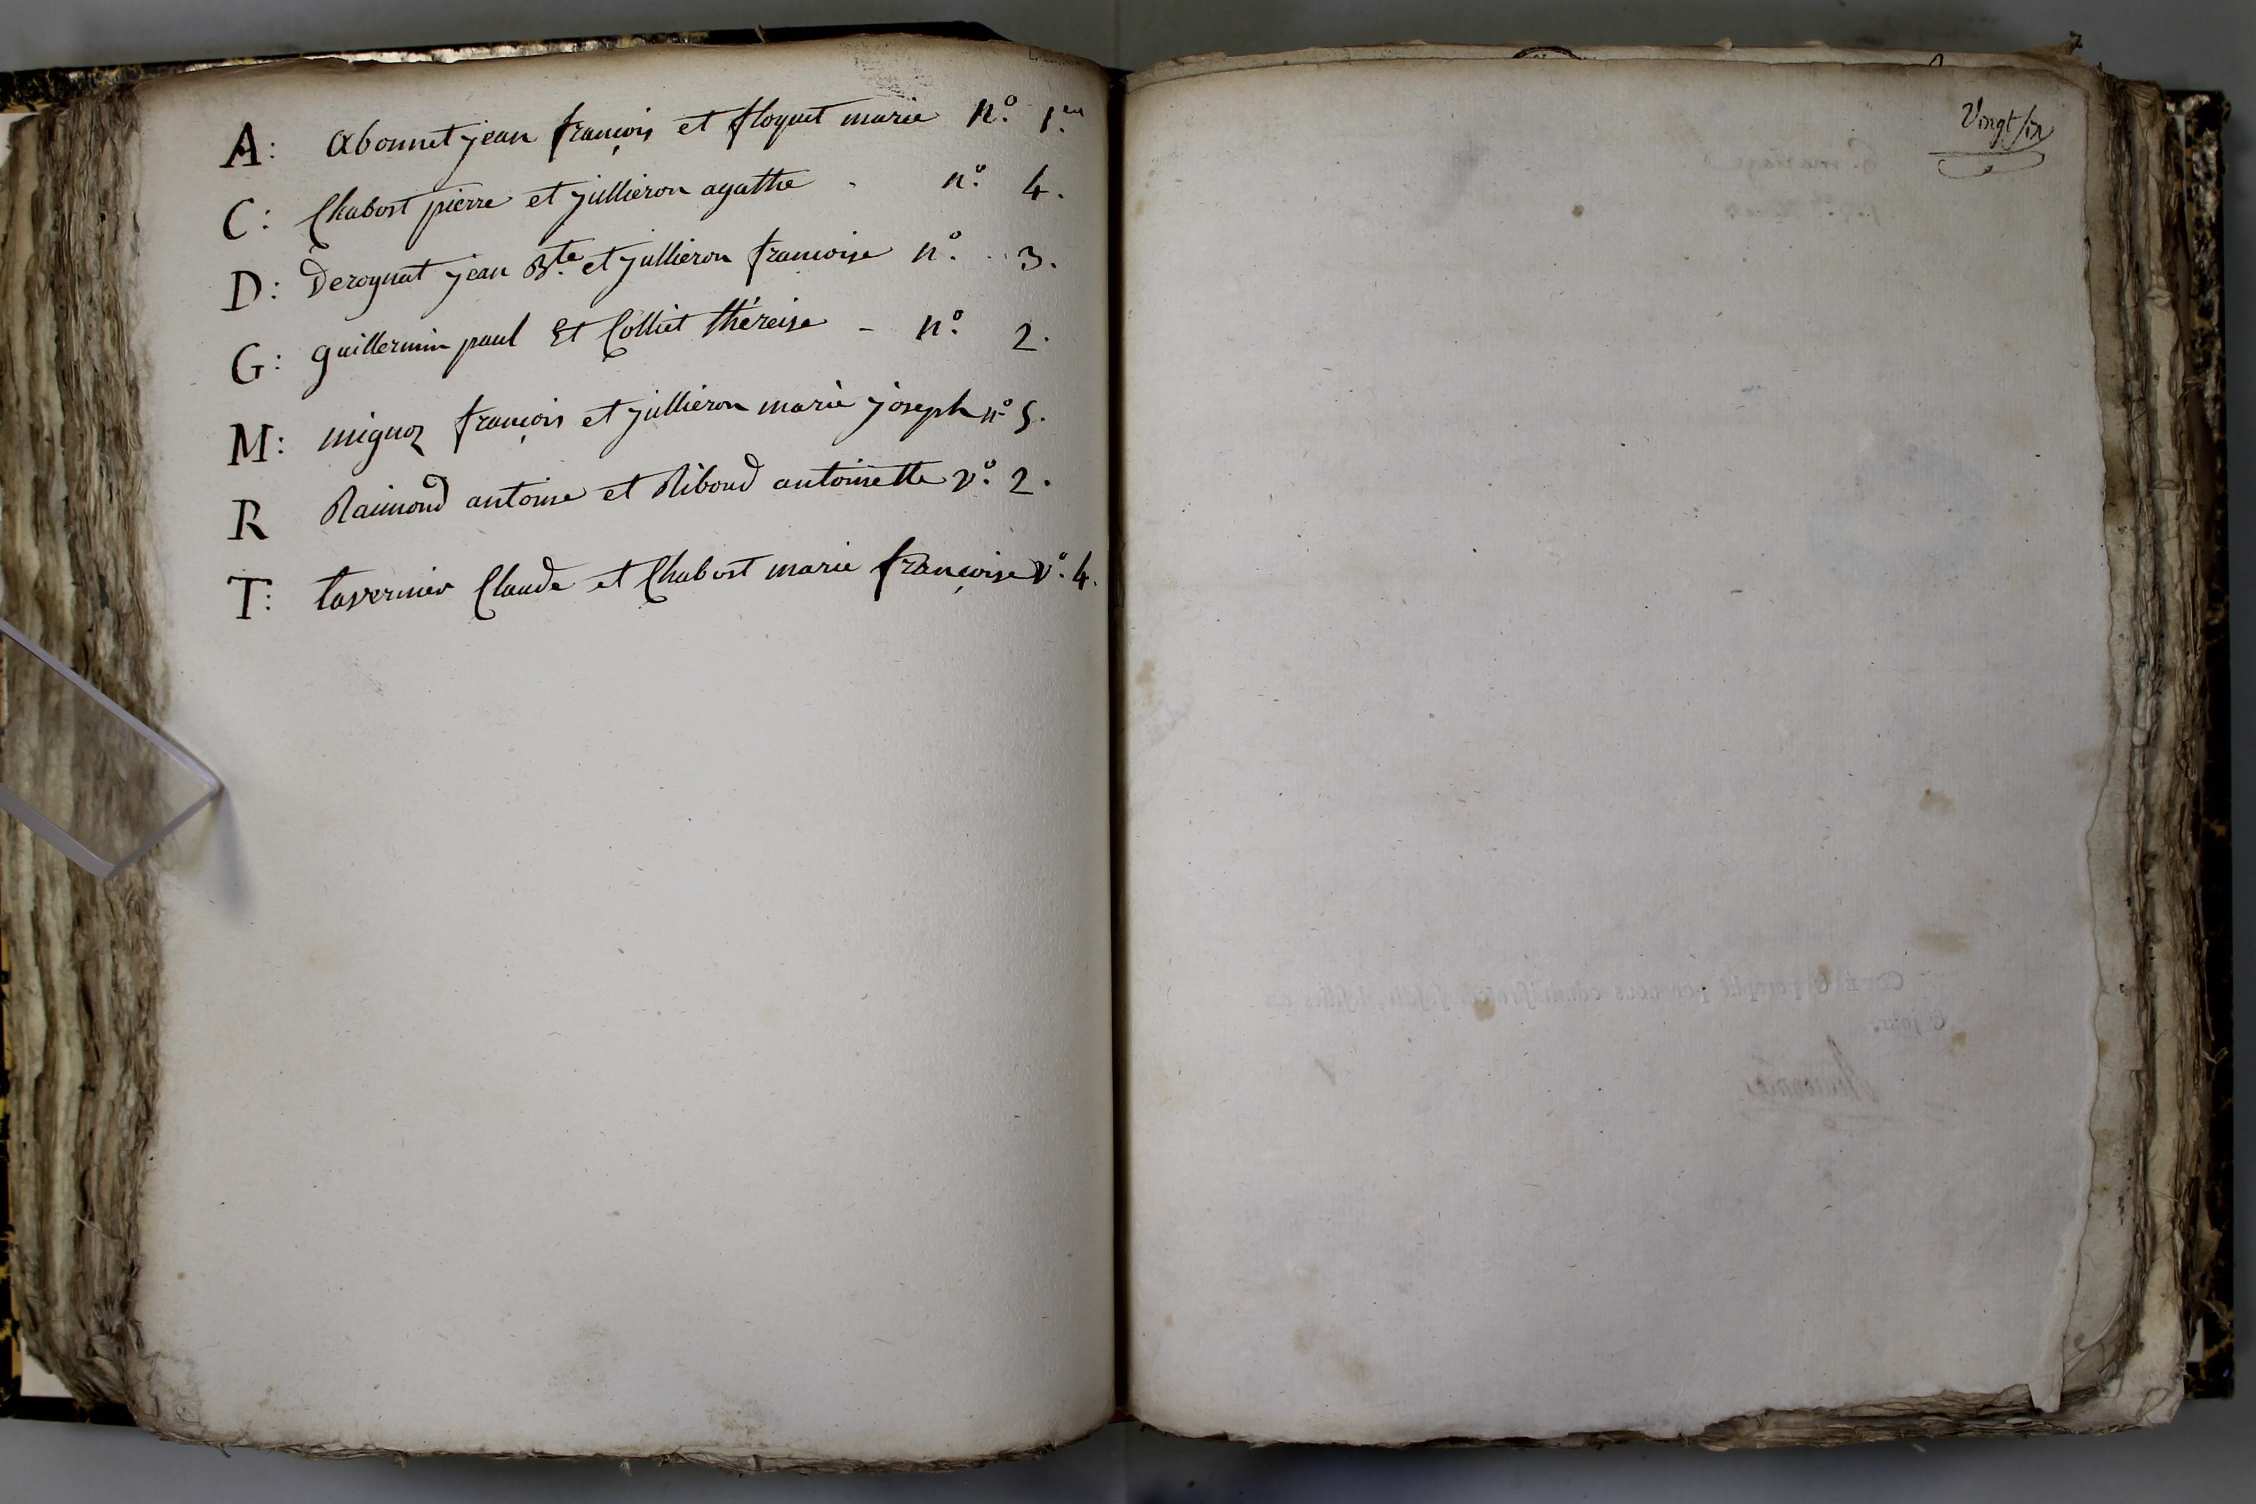 A: abonnet jean françois et floquet marie n.º 1.er
C: Chabost pierre et jullieron agathe - n.º 4.
D: Derognat jean B.te et jullieron francoise n.º 3.
G: guillermin paul Et Colliet théreise - n.º 2.
M: mignoz françois et jullieron marie joseph nº 5.
R Raimond antoine et Riboud antoinette v.º 2.
T: tavernier Claude et Chabost marie françoise v.º 4.
Vingt six